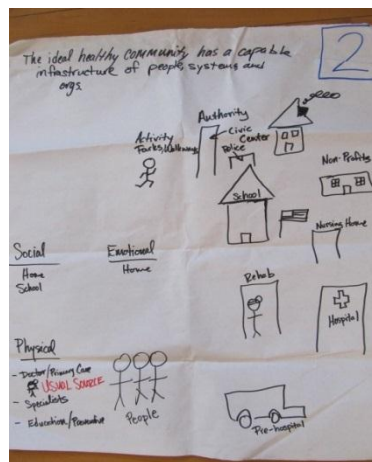 The ideal healthy community has a capable
infrastructure of people, systems and
orgs.
2
Authority
Civic
Center
Police
Activity
Parks, Walkways
School
Non-Profits
Nursing Home
Social
Home
School
Emotional
Home
Rehab
Hospital
Physical
- Doctor/Primary Care
USUAL SOURCE
- Specialists
- Education/Preventive
People
Pre-hospital